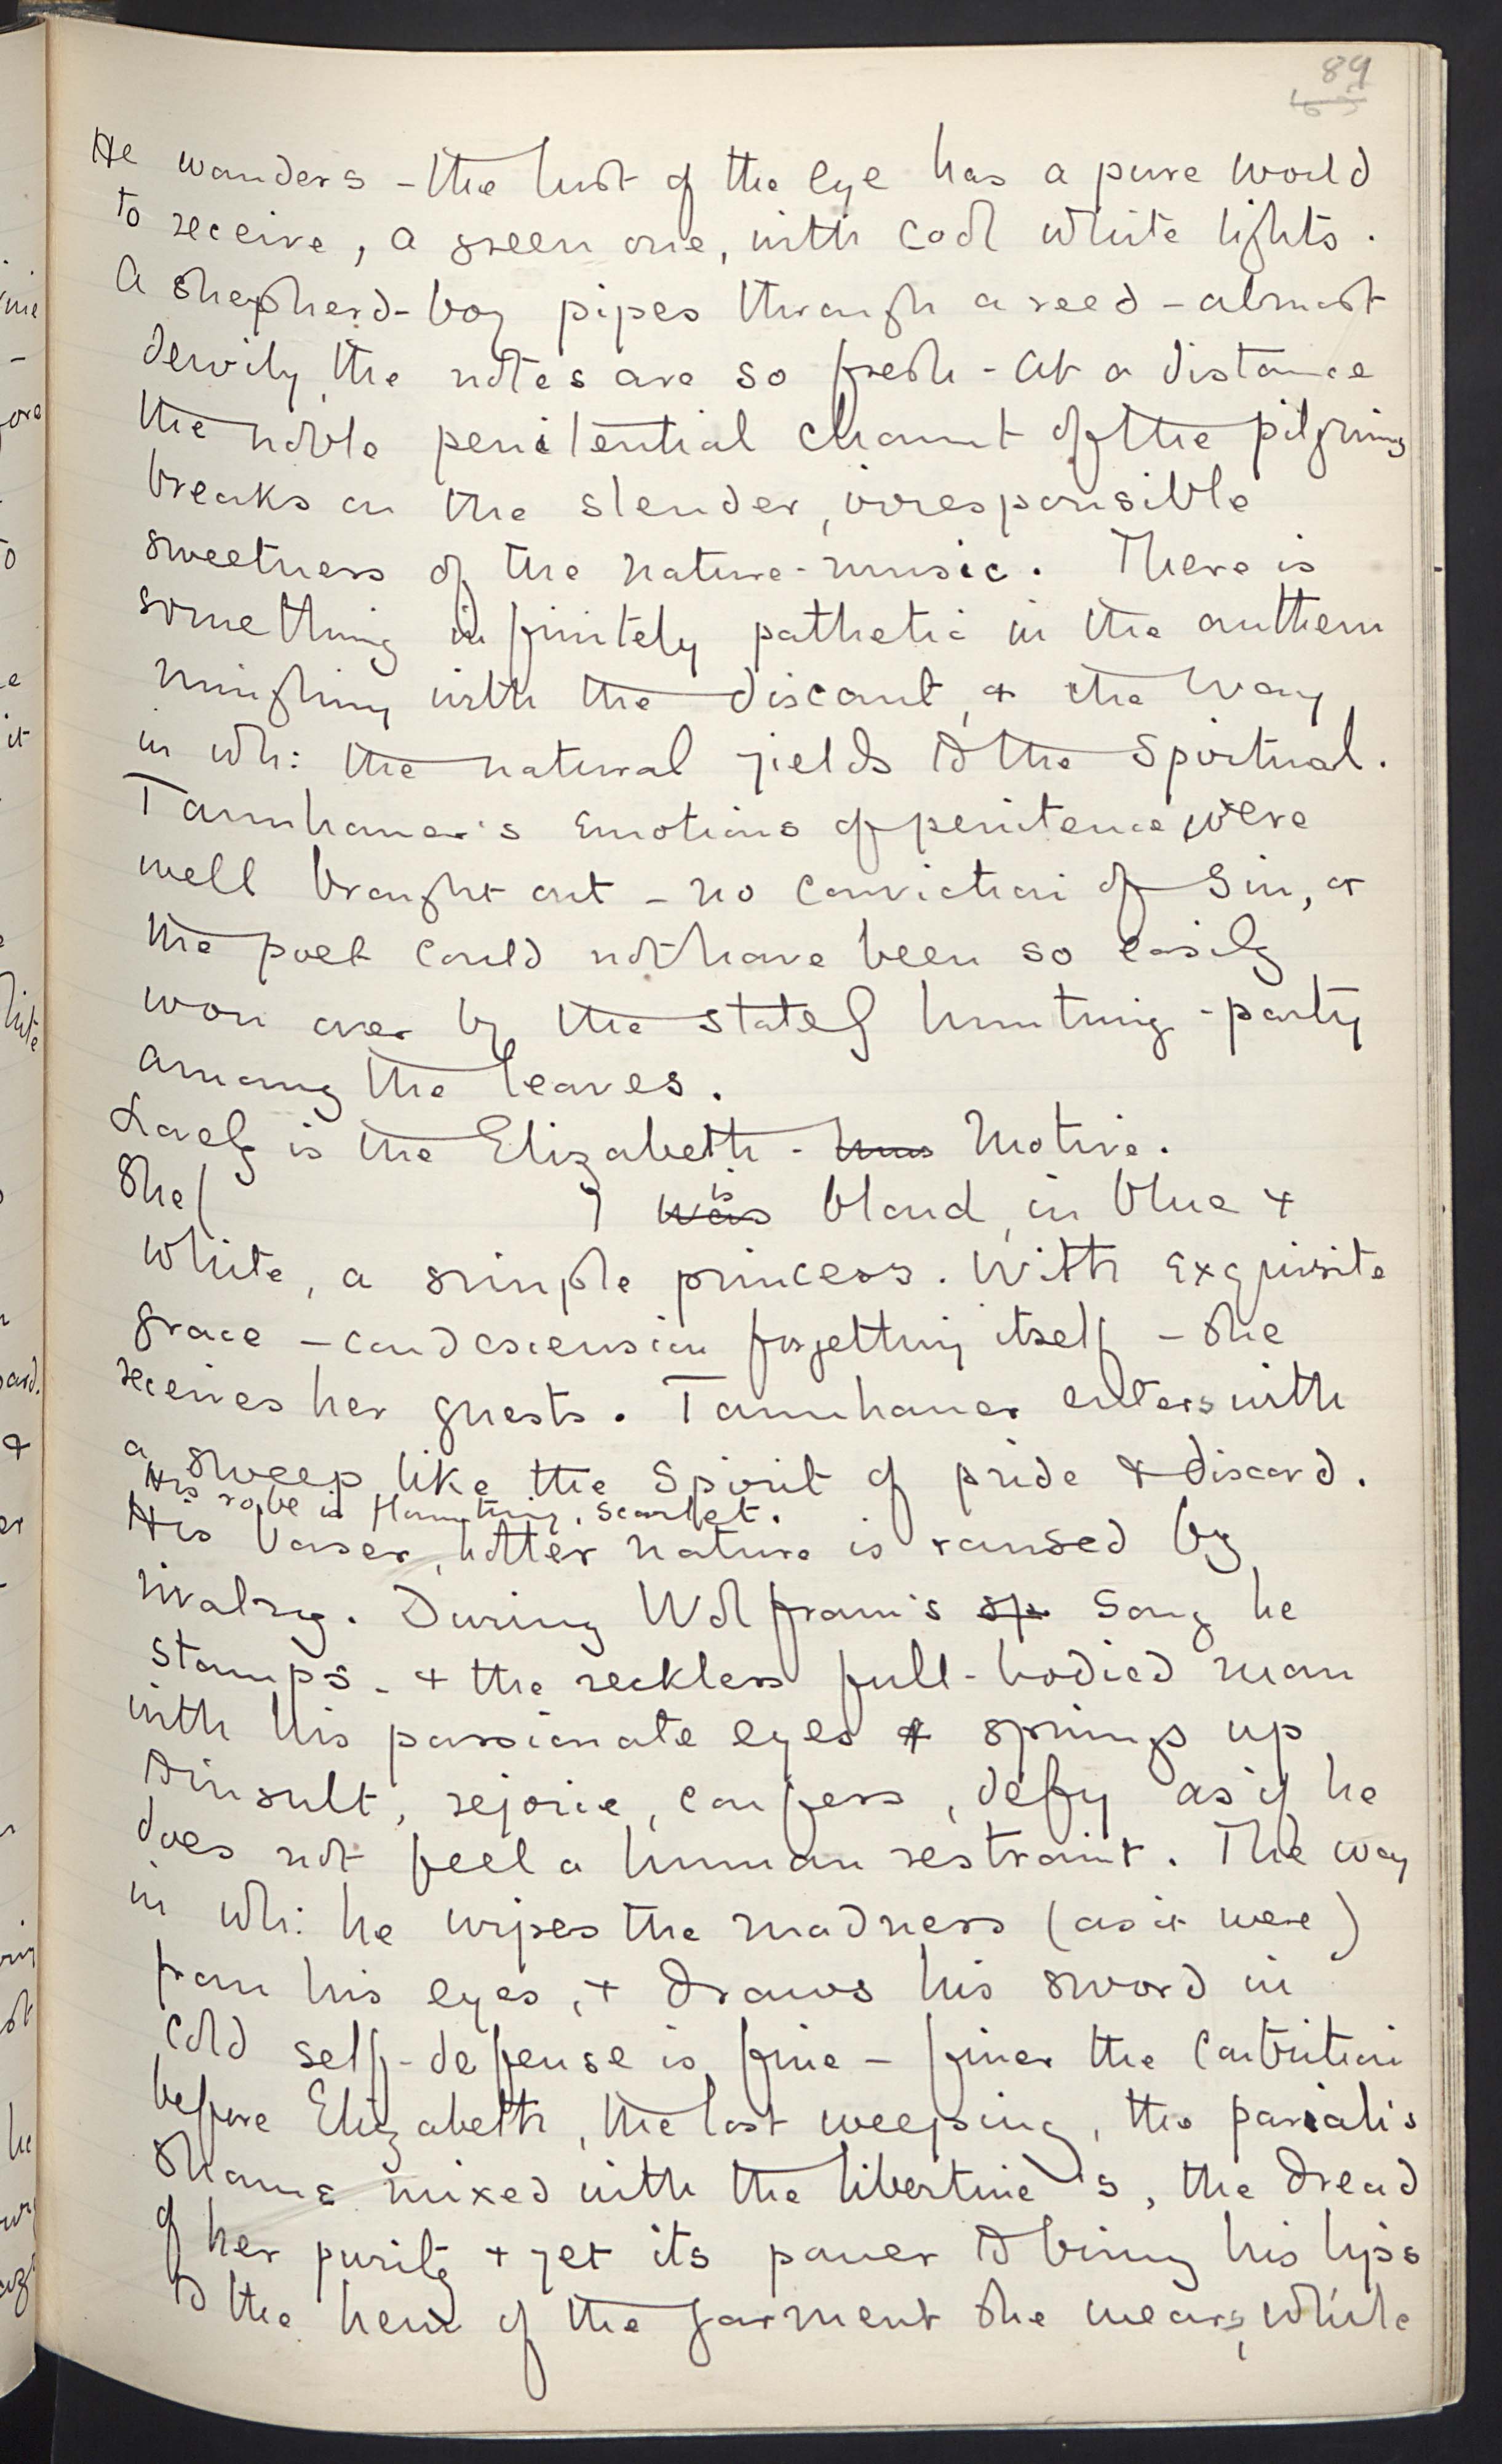 89
He wanders - the lust of the eye has a pure world
to receive, a green one, with cool white lights.
A shepherd-boy pipes through a reed - almost
dewily, the notes are so fresh - At a distance
the noble penitential chaunt of the pilgrims
breaks on the slender, irresponsible
sweetness of the nature-music. There is
something infinitely pathetic in the anthem
mingling with the discant, & the way
in wh: the natural yields to the spiritual.
Tannhauser's emotions of penitence were
well brought out - no conviction of sin, or
the poet could not have been so easily
won over by the stately hunting-party
among the leaves.
Lovely is the Elizabeth - Motive.
She ( ) was is blond, in blue &
white, a simple princess. With exquisite
grace - condescension forgetting itself - she
receives her guests. Tannhauser enters with
a sweep like the Spirit of pride & discord.
His robe is flaunting, scarlet.
His baser, hotter nature is roused by
rivalry. During Wolfram's sp song he
stamps - & the reckless full-bodied man
with his passionate eyes springs up
to insult, rejoice, confess, defy as if he
does not feel a human restraint. The way
in wh: he wipes the madness (as it were)
from his eyes, & draws his sword in
cold self-defense is fine - finer the contrition
before Elizabeth, the lost weeping, the pariah's
shame mixed with the libertine's, the dread
of her purity & yet its power to bring his lips
to the hem of the garment she wears, while